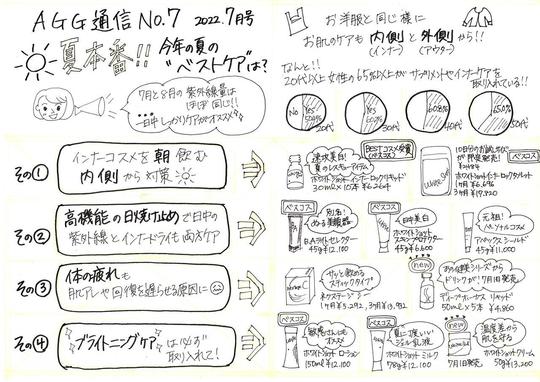 AGG通信 No.7 2022.7月号
夏本番!! 今年の夏の
"ベストケア"は?
7月と8月の紫外線量は
ほぼ同じ!!
一日中しっかりケアがオススメ
その①
インナーコスメを朝飲む
内側から対策
その②
高機能の日焼け止めで日中の
紫外線とインナードライも両方ケア
その③
体の疲れも
肌アレや回復を遅らせる原因に
その④
ブライトニングケアは必ず
取り入れて!
お洋服と同じ様に
お肌のケアも内側と外側から!!
(インナー) (アウター)
なんと!!
20代以上女性の65%以上がサプリメントやインナーケアを
取り入れている!!
No
20代
30代
60.8%
40代
65.0%
50代
速攻美白!
夏のレスキューアイテム
BESTコスメ受賞
ホワイトショット インナーロック リキッド
30ml×10本 ¥6,264
10日分のお試しサイズ
が
ベスコス
ホワイトショット インナーロック タブレット
3ヶ月 ¥19,820
ベスコス
別名!
ぬる美顔器
B.A ライト セレクター
45g ¥12,100
ベスコス
日中美白
ホワイトショット
スキンプロテクター
45g ¥6,600
元祖!
パーソナルコスメ
アペックス シールド
¥11,000
サッと飲める
スティックタイプ
1ヶ月 ¥5,292, 3ヶ月 ¥13,932
new
ドリンクが!7月1日発売
ディープホーガス リキッド
50ml×5本 ¥4,860
ベスコス
敏感さんにも
オススメ
ホワイトショット ローション
150ml ¥12,100
ベスコス
夏に嬉しい
ジェル乳液
ホワイトショット ミルク
78g ¥12,100
new
温度差から
肌を守る
7月1日発売
ホワイトショット クリーム
50g ¥13,200